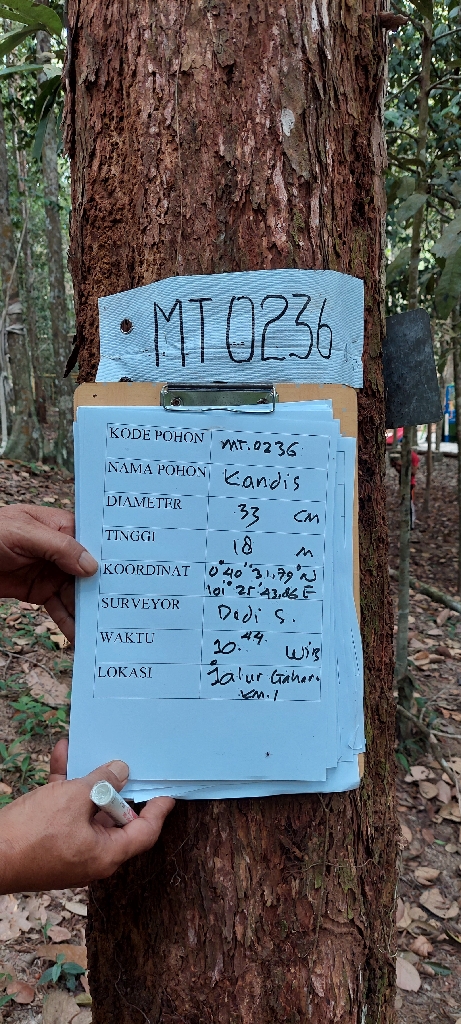 MT0236
KODE POHON MT.0236
NAMA POHON Kandis
DIAMETER 33 CM
TINGGI 18 M
KOORDINAT 0°40'31,79"N
101°25'43,86E
SURVEYOR Dodi S.
WAKTU 10.44 WIB
LOKASI Jalur Gaharu
KM.1